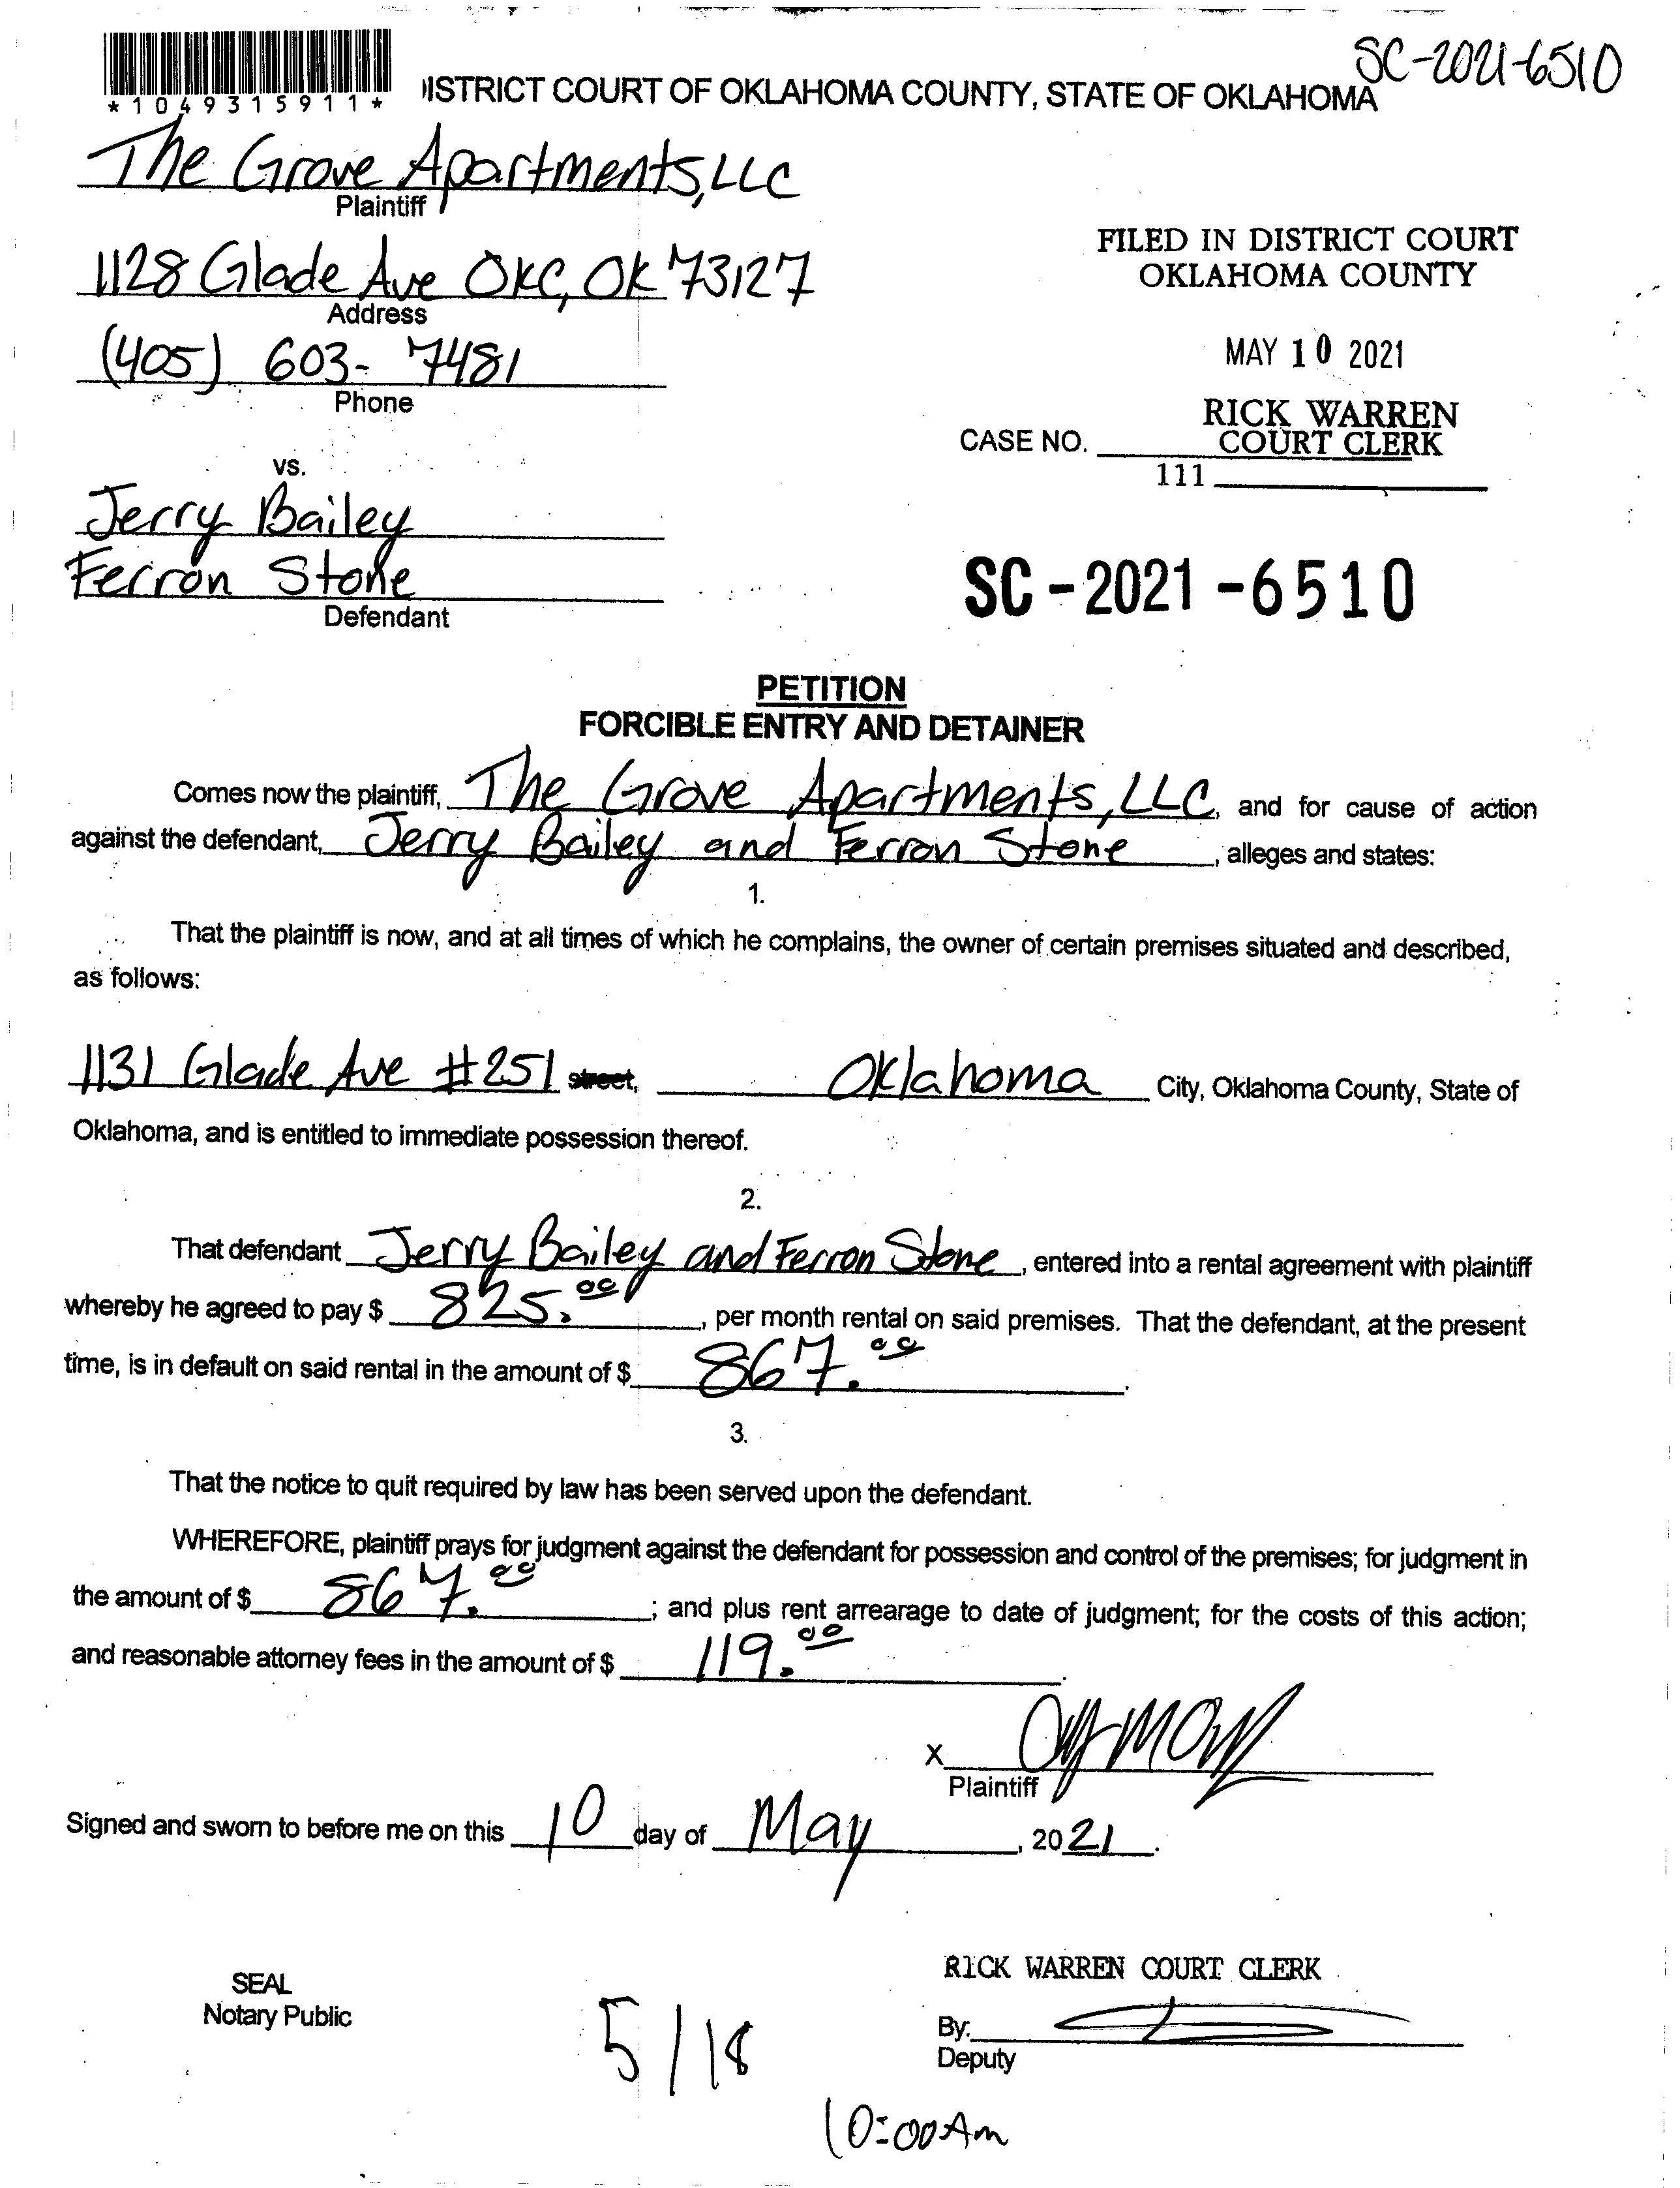 SC-2021-6510
*1049315911*
ISTRICT COURT OF OKLAHOMA COUNTY, STATE OF OKLAHOMA
The Grove Apartments, LLC
Plaintiff
1128 Glade Ave OKC, OK 73127
Address
(405) 603-7481
Phone
FILED IN DISTRICT COURT
OKLAHOMA COUNTY
MAY 10 2021
RICK WARREN
COURT CLERK
CASE NO.
111
vs.
Jerry Bailey
Ferron Stone
Defendant
SC-2021-6510
PETITION
FORCIBLE ENTRY AND DETAINER
Comes now the plaintiff, The Grove Apartments, LLC, and for cause of action
against the defendant, Jerry Bailey and Ferron Stone, alleges and states:
1.
That the plaintiff is now, and at all times of which he complains, the owner of certain premises situated and described,
as follows:
1131 Glade Ave #251 street, Oklahoma City, Oklahoma County, State of
Oklahoma, and is entitled to immediate possession thereof.
2.
That defendant Jerry Bailey and Ferron Stone, entered into a rental agreement with plaintiff
whereby he agreed to pay $ 825.00, per month rental on said premises. That the defendant, at the present
time, is in default on said rental in the amount of $ 867.00.
3.
That the notice to quit required by law has been served upon the defendant.
WHEREFORE, plaintiff prays for judgment against the defendant for possession and control of the premises; for judgment in
the amount of $ 867.00; and plus rent arrearage to date of judgment; for the costs of this action;
and reasonable attorney fees in the amount of $ 119.00.
X
Plaintiff
Signed and sworn to before me on this 10 day of May, 2021.
SEAL
Notary Public
RICK WARREN COURT CLERK
By:
Deputy
5/18
10:00Am